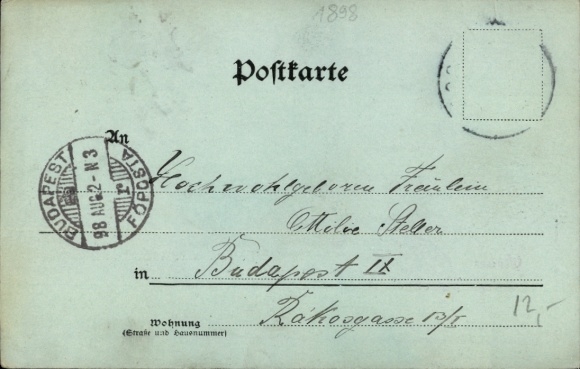 1898
Postkarte
An
BUDAPEST FŐPOSTA
98 AUG 2 - N 3
Hochwohlgeboren Fräulein
Steller
in Budapest II
Rákosgasse
Wohnung
(Straße und Hausnummer)
12,-